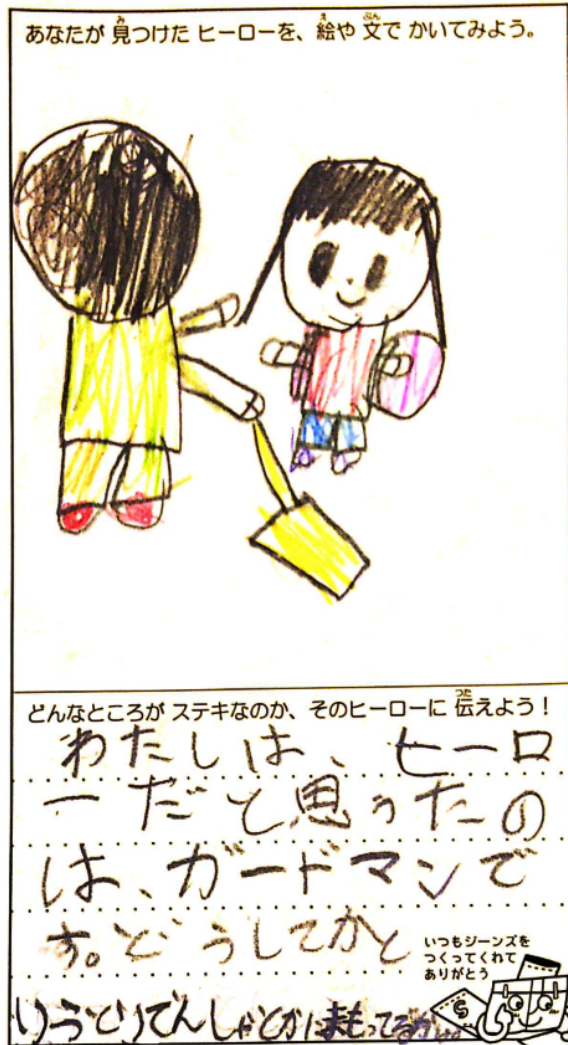 あなたが 見つけた ヒーローを、絵や 文で かいてみよう。
どんなところが ステキなのか、そのヒーローに 伝えよう！
わたしは、ヒーロ
ーだと思ったの
は、ガードマンで
す。どうしてかと
いうとりでんしゃとかにまもってるから
いつもジーンズを
つくってくれて
ありがとう